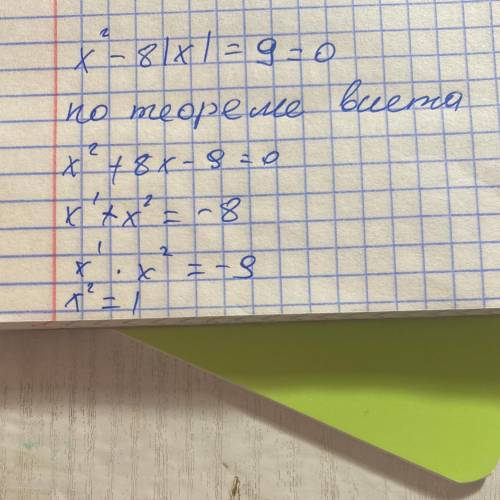 x² - 8|x| = 9 = 0
по теореме виета
x² + 8x - 9 = 0
x¹ + x² = -8
x¹ · x² = -9
x² = 1